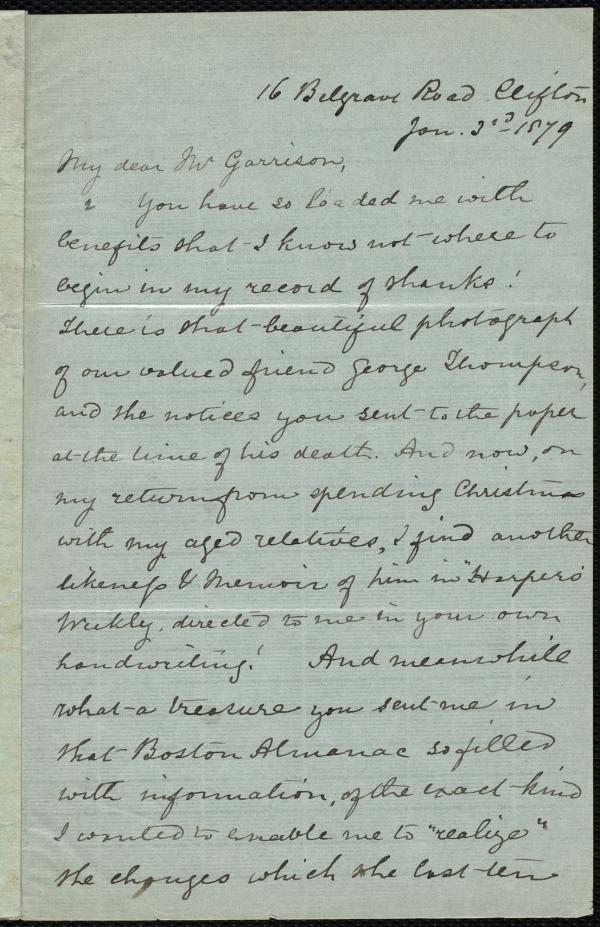 16 Belgrave Road Clifton
Jan. 3rd 1879
My dear Mr Garrison,
You have so loaded me with
benefits that I know not where to
begin in my record of thanks!
There is that beautiful photograph
of our valued friend George Thompson,
and the notices you sent to the paper
at the time of his death. And now, on
my return from spending Christmas
with my aged relatives, I find another
likeness & Memoir of him in "Harper's
Weekly, directed to me in your own
handwriting! And meanwhile
what a treasure you sent me in
that Boston Almanac so filled
with information, of the exact kind
I wanted to enable me to "realize"
the changes which the last ten